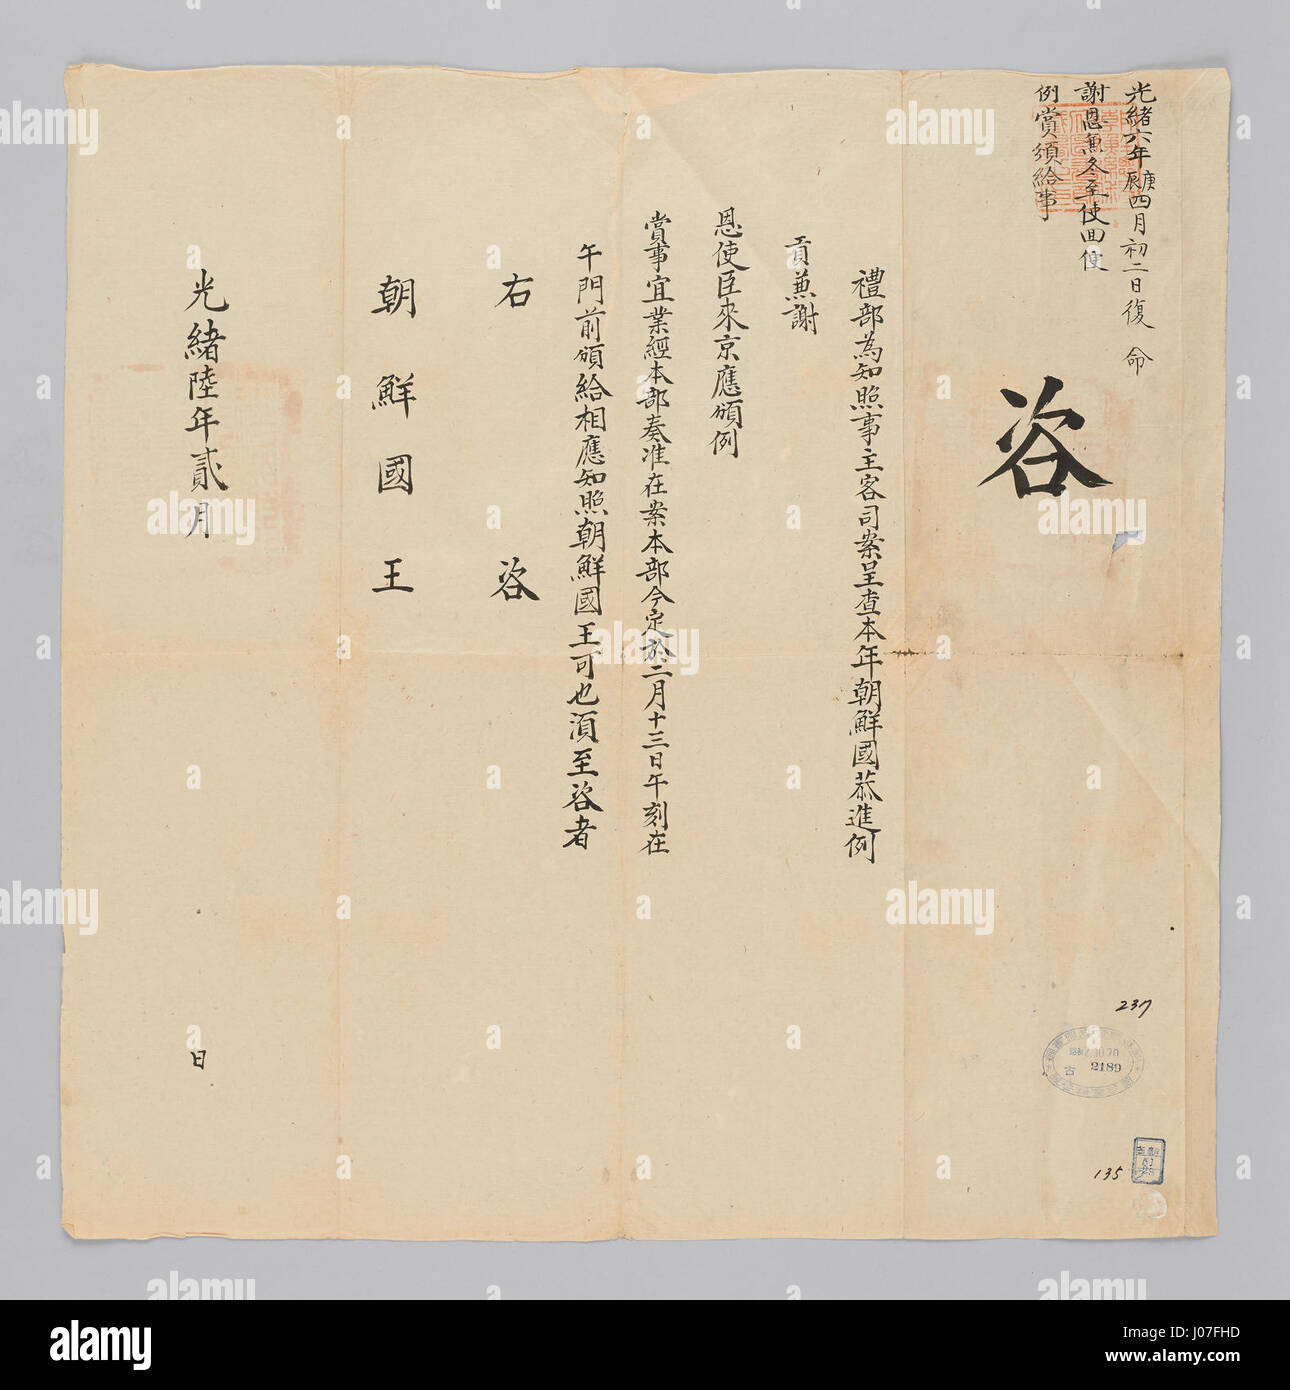 光緒六年庚辰四月初二日復 命
謝恩兼冬至使回便
例賞須給事
咨
禮部為知照事主客司案呈查本年朝鮮國恭進例
貢兼謝
恩使臣來京應頒例
賞事宜業經本部奏准在案本部今定於二月十三日午刻在
午門前頒給相應知照朝鮮國王可也須至咨者
右 咨
朝鮮國王
光緒陸年貳月 日
237
2189
古
135
alamy
Image ID: J07FHD
www.alamy.com